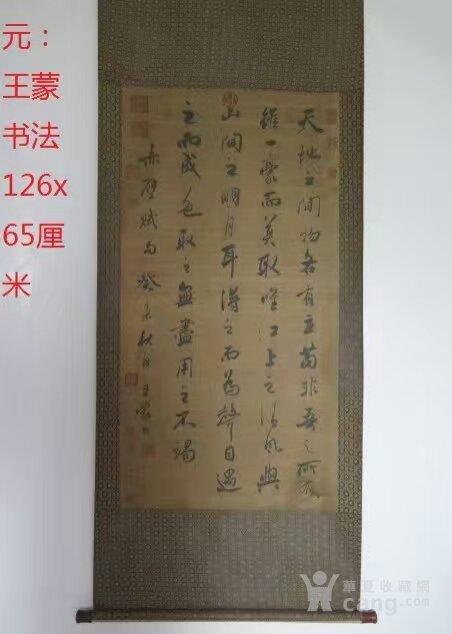 元：
王蒙
书法
126x
65厘
米
天地之間物各有主苟非吾之所有
雖一毫而莫取唯江上之清風與
山間之明月耳得之而為聲目遇
之而成色取之無盡用之不竭
赤壁賦句 癸未秋日王蒙
華夏收藏網
cang.com